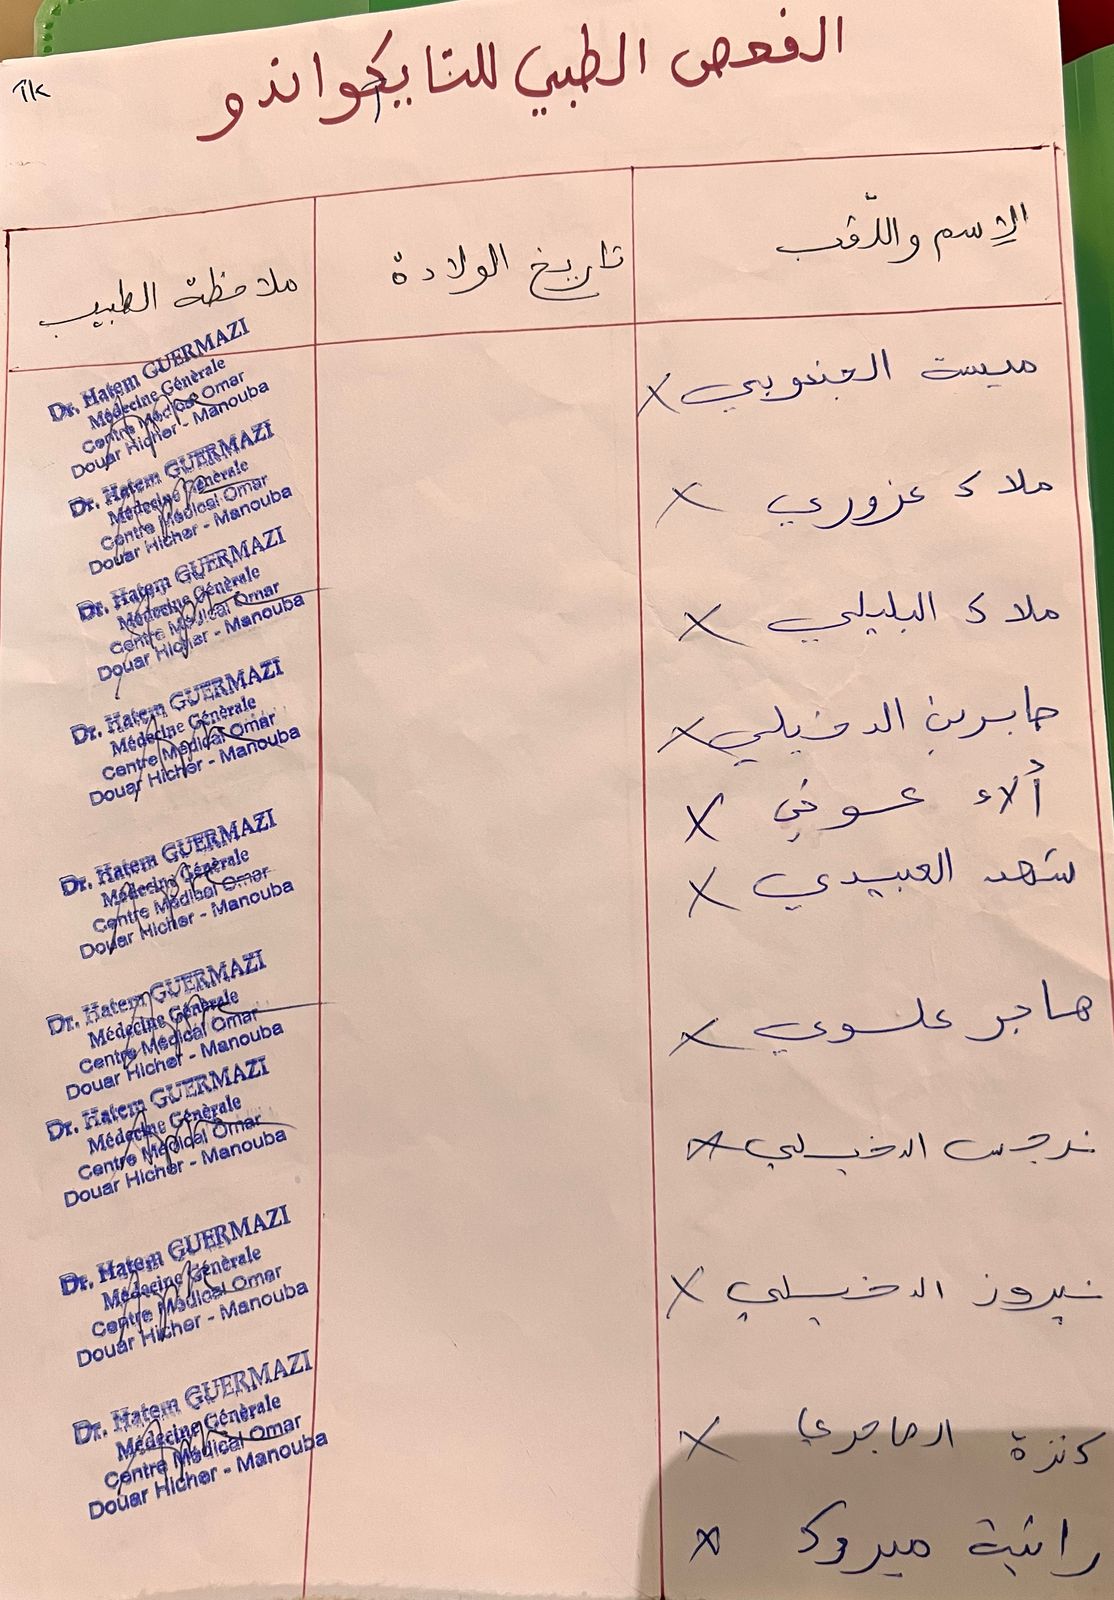 الفحص الطبي للتايكواندو
TK
الإسم واللّقب
تاريخ الولادة
ملاحظة الطبيب
ميسة الجندوبي X
ملاك عزوري X
ملاك البليلي X
صابرين الدخيلي X
ألاء عوني X
شهد العبيدي X
هاجر علوي X
نرجس الدخيلي X
نيروز الدخيلي X
كنزة الماجري X
رانية مبروك X
Dr. Hatem GUERMAZI
Médecine Générale
Centre Médical Omar
Douar Hicher - Manouba
Dr. Hatem GUERMAZI
Médecine Générale
Centre Médical Omar
Douar Hicher - Manouba
Dr. Hatem GUERMAZI
Médecine Générale
Centre Médical Omar
Douar Hicher - Manouba
Dr. Hatem GUERMAZI
Médecine Générale
Centre Médical Omar
Douar Hicher - Manouba
Dr. Hatem GUERMAZI
Médecine Générale
Centre Médical Omar
Douar Hicher - Manouba
Dr. Hatem GUERMAZI
Médecine Générale
Centre Médical Omar
Douar Hicher - Manouba
Dr. Hatem GUERMAZI
Médecine Générale
Centre Médical Omar
Douar Hicher - Manouba
Dr. Hatem GUERMAZI
Médecine Générale
Centre Médical Omar
Douar Hicher - Manouba
Dr. Hatem GUERMAZI
Médecine Générale
Centre Médical Omar
Douar Hicher - Manouba